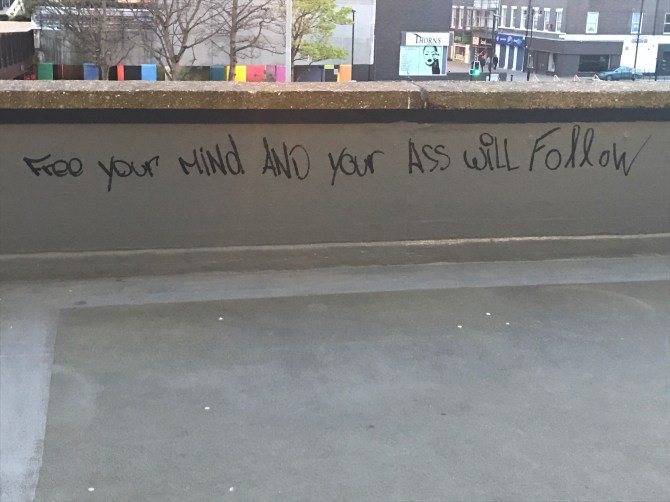 THORNS
Free your MiNd AND your ASS wiLL Follow